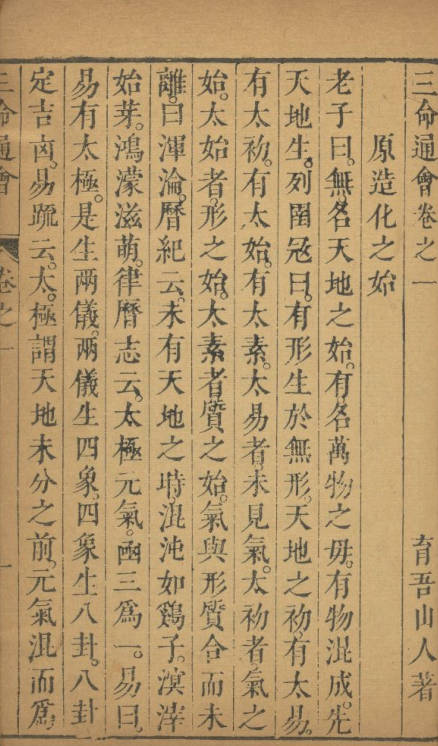 三命通會卷之一 育吾山人著
原造化之始
老子曰。無名天地之始。有名萬物之母。有物混成。先
天地生。列圄冦曰。有形生於無形。天地之初。有太易。
有太初。有太始。有太素。太易者。未見氣。太初者。氣之
始。太始者。形之始。太素者。質之始。氣與形質合而未
離。曰渾淪。曆紀云。未有天地之時。混沌如鷄子。溟涬
始芽。鴻濛滋萌。律曆志云。太極元氣。函三為一。易曰。
易有太極。是生兩儀。兩儀生四象。四象生八卦。八卦
定吉凶。易疏云。太極謂天地未分之前。元氣混而為
三命通會 卷之一 一